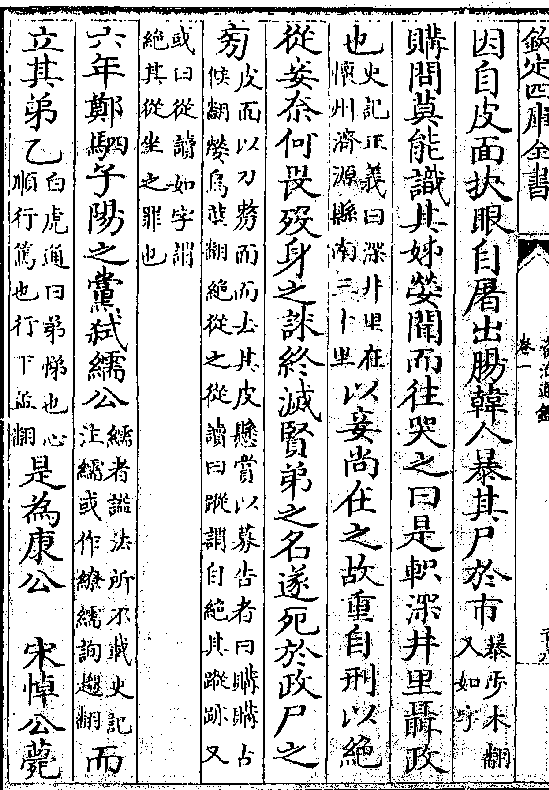 欽定四庫全書
資治通鑑
卷一
因自皮面抉眼自屠出腸韓人暴其尸於市暴步木翻又如字
購問莫能識其姊嫈聞而往哭之曰是軹深井里聶政
也史記正義曰深井里在懷州濟源縣南三十里以妾尚在之故重自刑以絶
從妾奈何畏歿身之誅終滅賢弟之名遂死於政尸之
旁皮面以刀剺面而去其皮懸賞以募告者曰購購古候翻嫈烏莖翻絶從之從讀曰蹤謂自絶其蹤跡又
或曰從讀如字謂絶其從坐之罪也
六年鄭駟子陽之黨弑繻公繻者諡法所不載史記注繻或作繚繻詢趨翻而
立其弟乙白虎通曰弟悌也心順行篤也行下孟翻是為康公　宋悼公薨